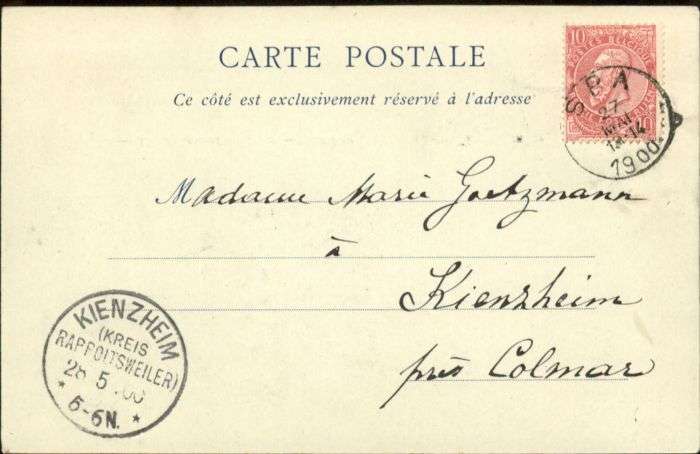 CARTE POSTALE
Ce côté est exclusivement réservé à l'adresse
10
POSTES
SPA
27
MAI
1900
Madame Marie Goetzmann
à
Kienzheim
près Colmar
KIENZHEIM
(KREIS
RAPPOLTSWEILER)
28 5 00
5-6N.